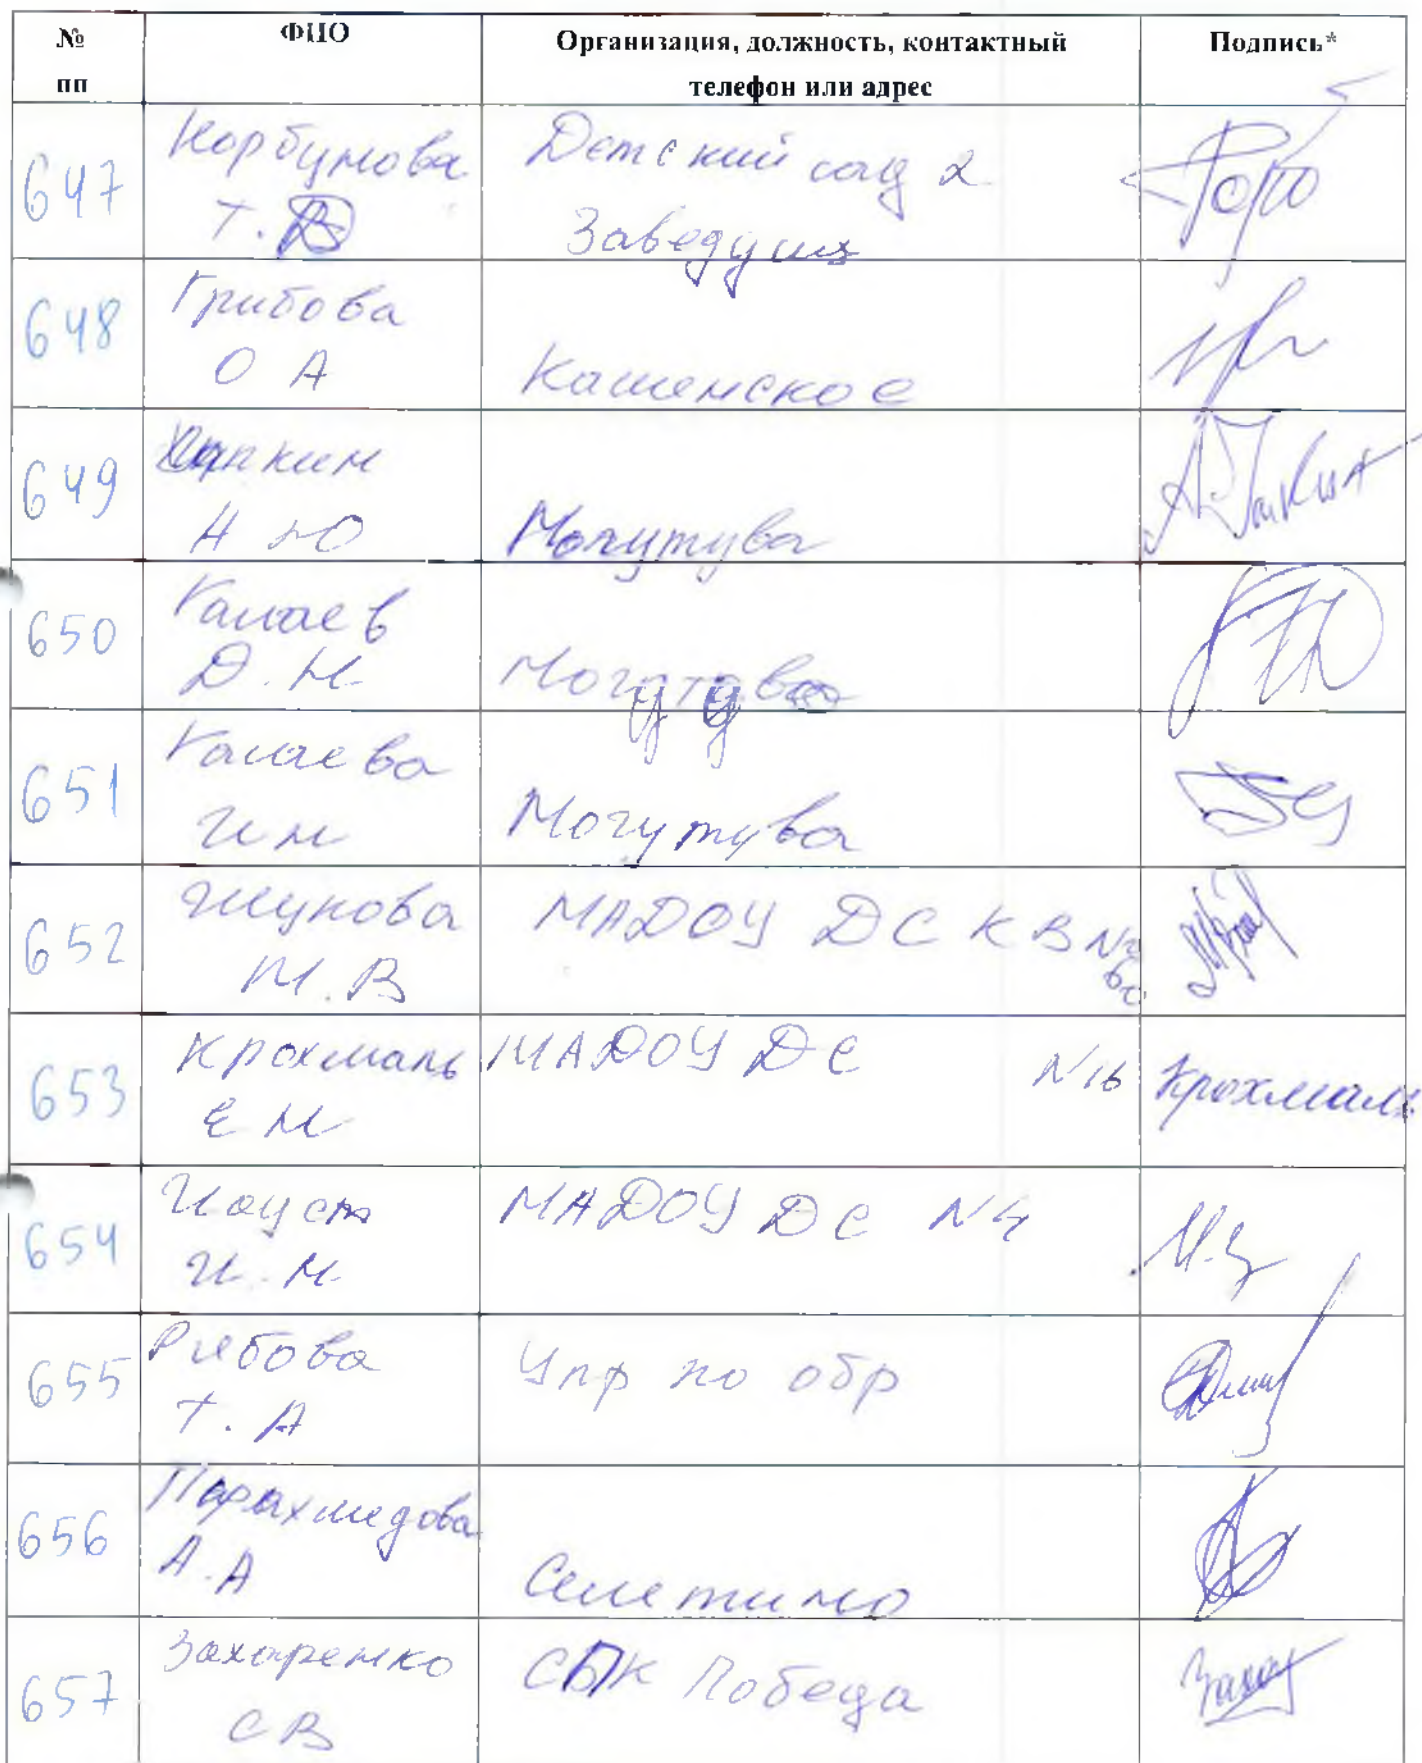 № пп ФИО Организация, должность, контактный телефон или адрес Подпись*
647 Корбунова Детский сад 2
Т. В Заведующ
648 Грибова
О А Кашенское
649 Хапкин
А Ю Могутува
650 Калаев
Д. Н Могутува
651 Калаева
И Н Могутува
652 Жукова МАДОУ ДС К В №
М. В
653 Крохмаль МАДОУ ДС N 16 Крохмаль
Е М
654 МАДОУ ДС N 4
И. М
655 Рябова Упр по обр
Т. А
656
А. А Селетино
657 Захаренко СПК Победа
С В